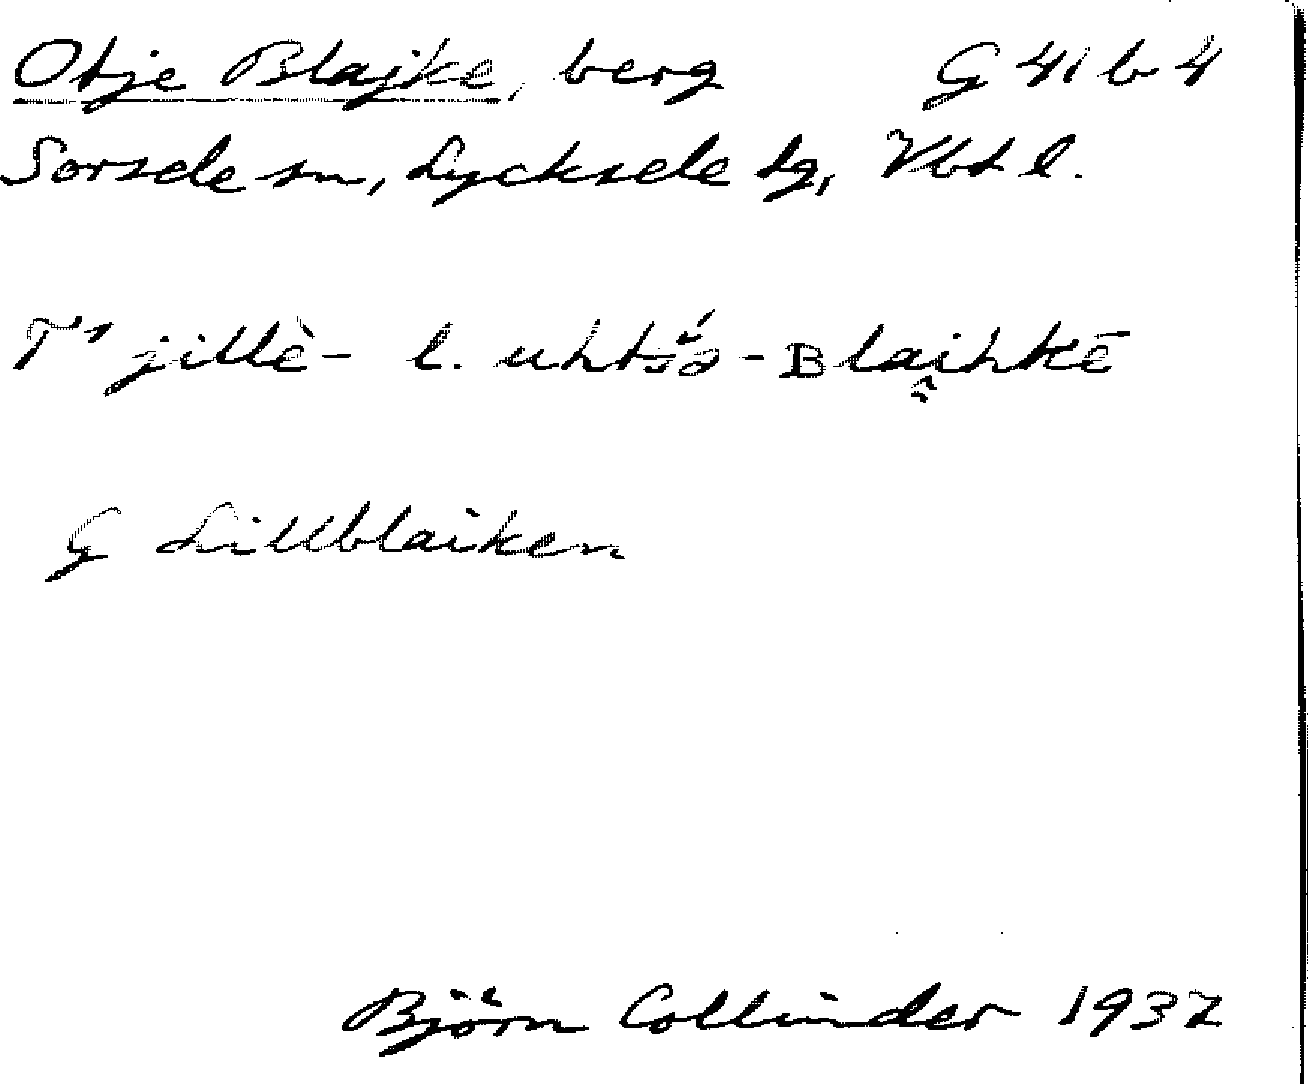 Otje Blajke, berg G 41 b 4
Sorsele sn, Lycksele lg, Vbt l.
T' jillè- l. uhtsə́- Blaihkē
G Lillblaiken
Björn Collinder 1937